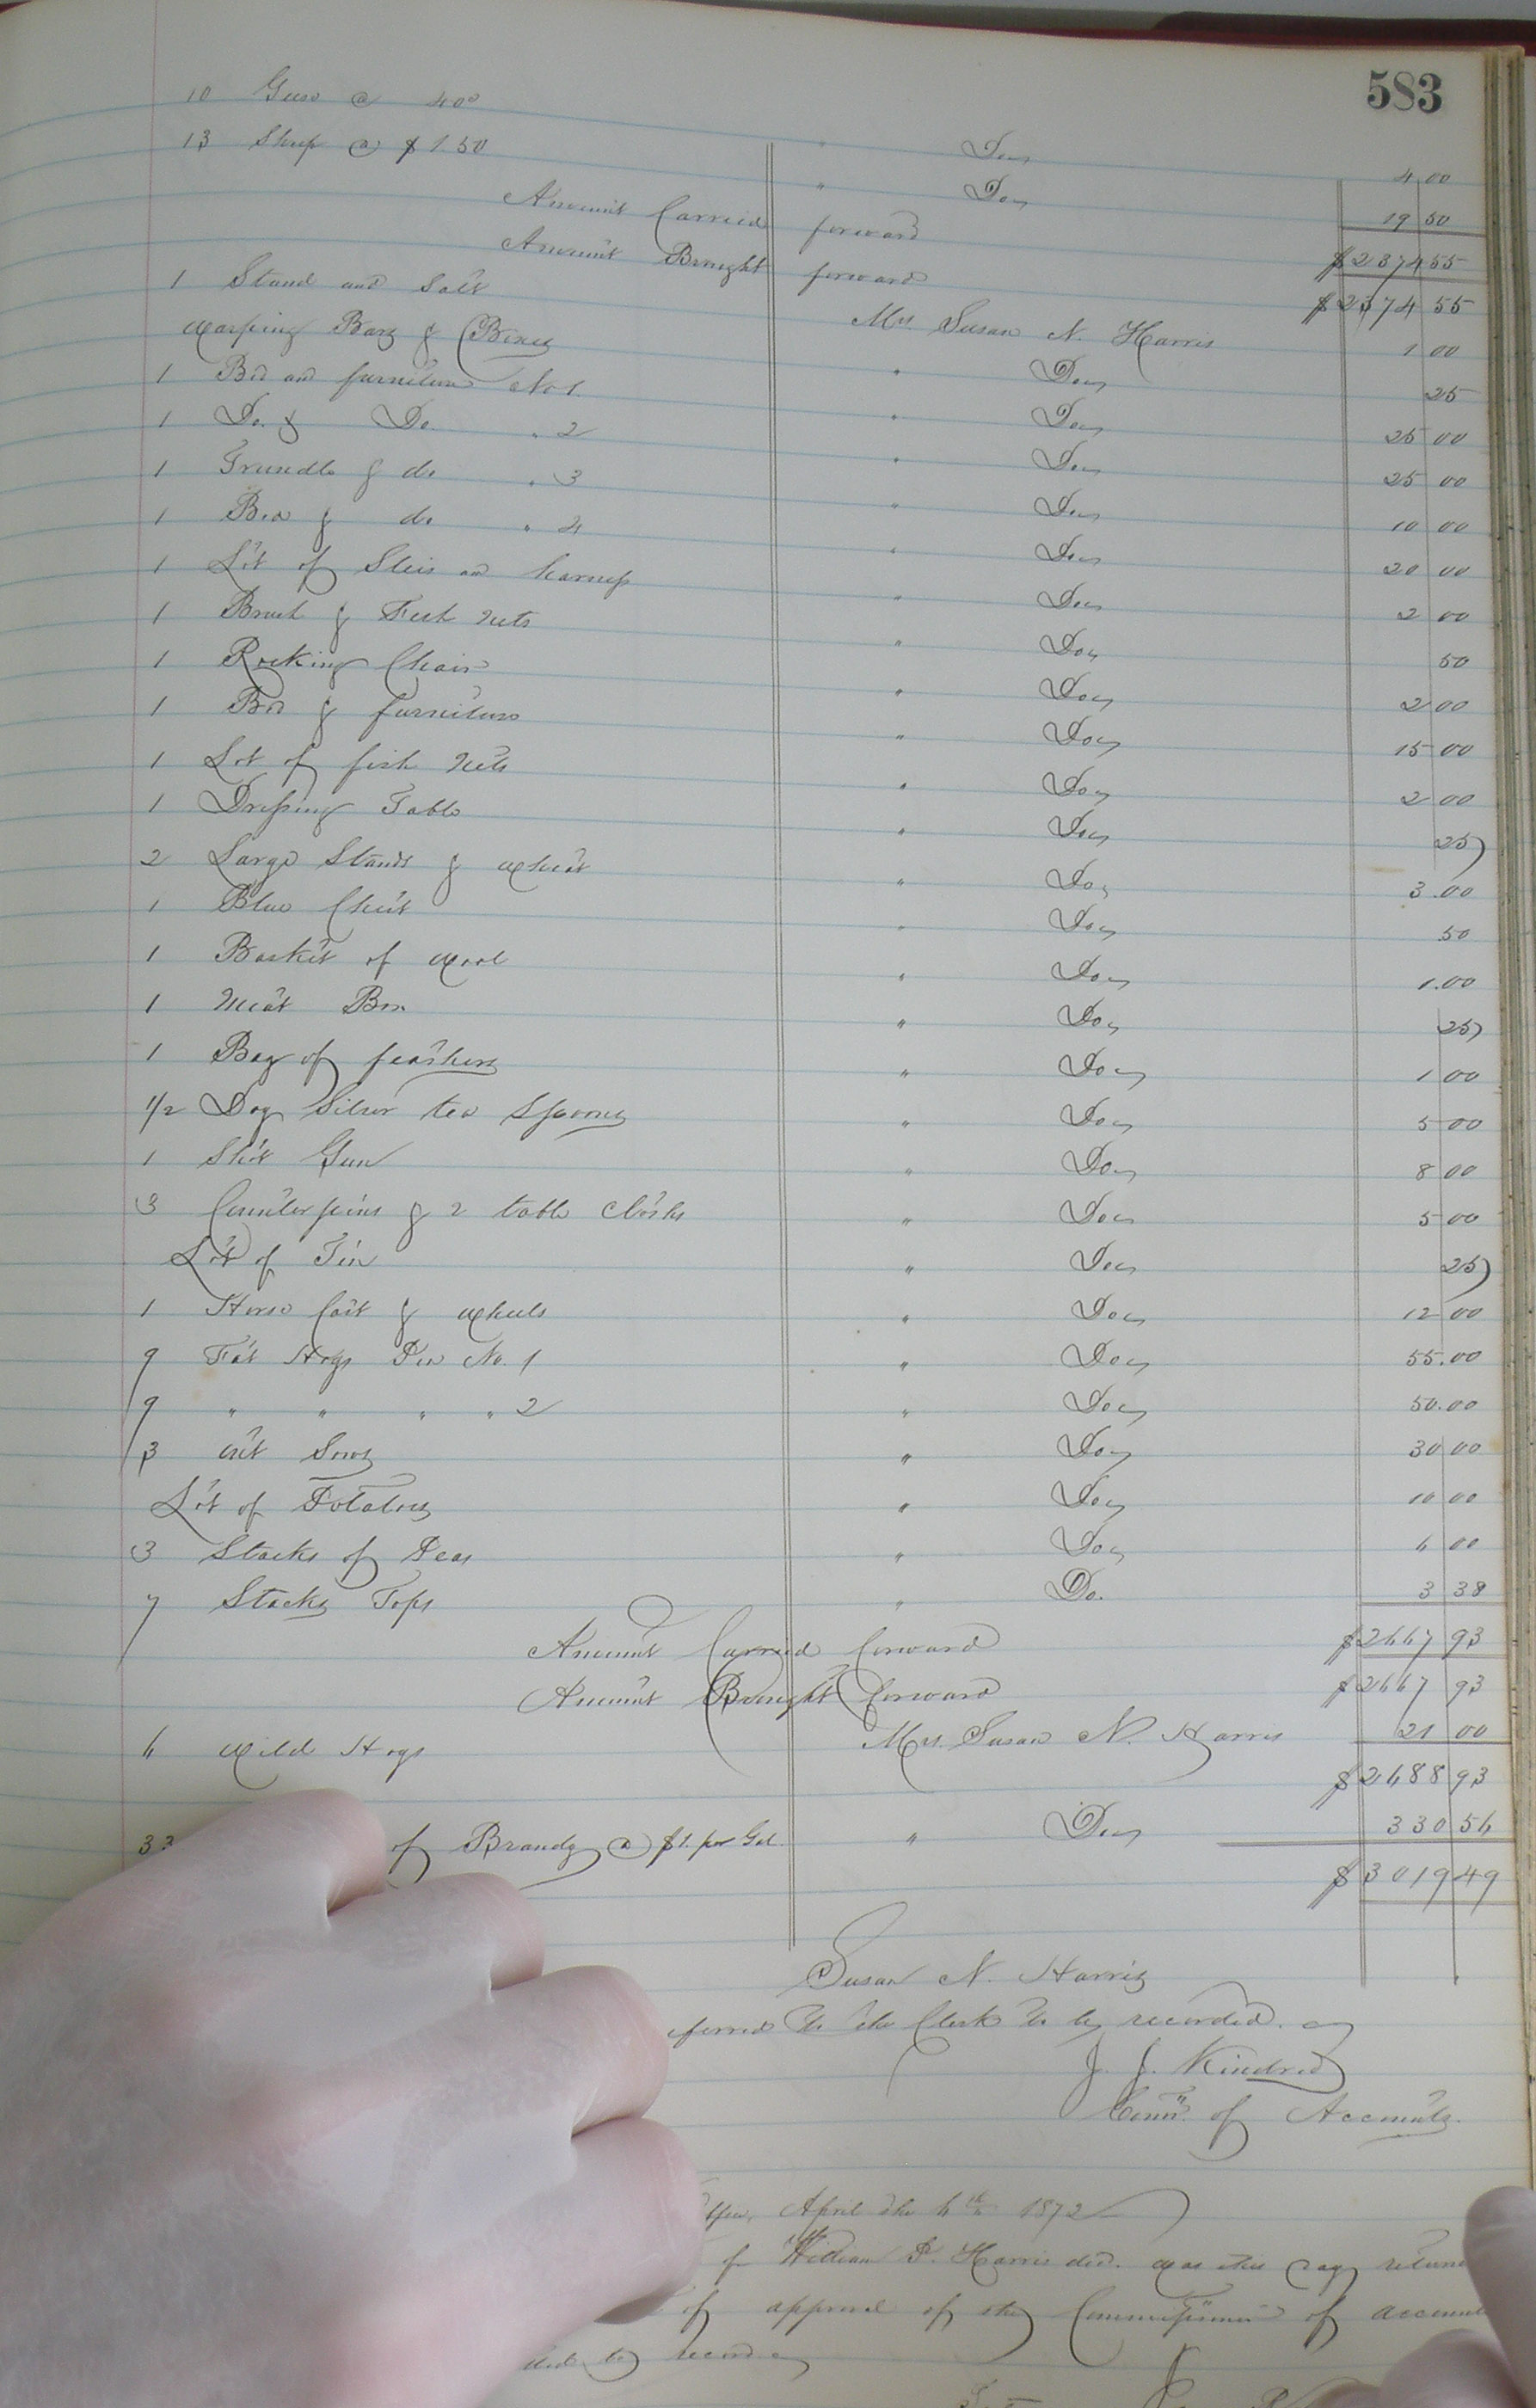 583
10 Geese @ 40¢ " Do 4 00
13 Sheep @ $1.50 " Do 19 50
Amount Carried forward $2374 55
Amount Brought forward $2374 55
1 Stand and Salt Mrs Susan N. Harris 1 00
Warping Bars & Boxes " Do 25
1 Bed and furniture No 1. " Do 25 00
1 Do. & Do. " 2 " Do 25 00
1 Trundle & do " 3 " Do 10 00
1 Bed & do " 4 " Do 20 00
1 Lot of Sleis and harness " Do 2 00
1 " Do 50
1 Rocking Chair " Do 2 00
1 Bed & furniture " Do 15 00
1 Lot of fish Nets " Do 2 00
1 Dressing Table " Do 25
2 Large Stands & Wheat " Do 3.00
1 Blue Chest " Do 50
1 Basket of Wool " Do 1.00
1 Meat Box " Do 25
1 Bag of feathers " Do 1 00
1/2 Doz Silver tea Spoons " Do 5 00
1 Shot Gun " Do 8 00
3 Counterpins & 2 table Cloths " Do 5 00
Lot of Tin " Do 25
1 Horse Cart & Wheels " Do 12 00
9 Fat Hogs Pen No. 1 " Do 55.00
9 " " " " 2 " Do 50.00
3 out Sows " Do 30 00
Lot of Potatoes " Do 10 00
3 Stacks of Peas " Do 6 00
7 Stacks Tops " Do. 3 38
Amount Carried forward $2667 93
Amount Brought forward $2667 93
6 Wild Hogs Mrs. Susan N. Harris 21 00
$2688 93
33 of Brandy @ $1. per Gal. " Do 330 56
$3019 49
Susan N. Harris
ferred to the Clerk to be recorded.
J. J. Kindred
Comr. of Accounts.
Office, April the 6th 1872
of William P. Harris decd. was this day returned
of approval of the Commissioner of accounts
to record